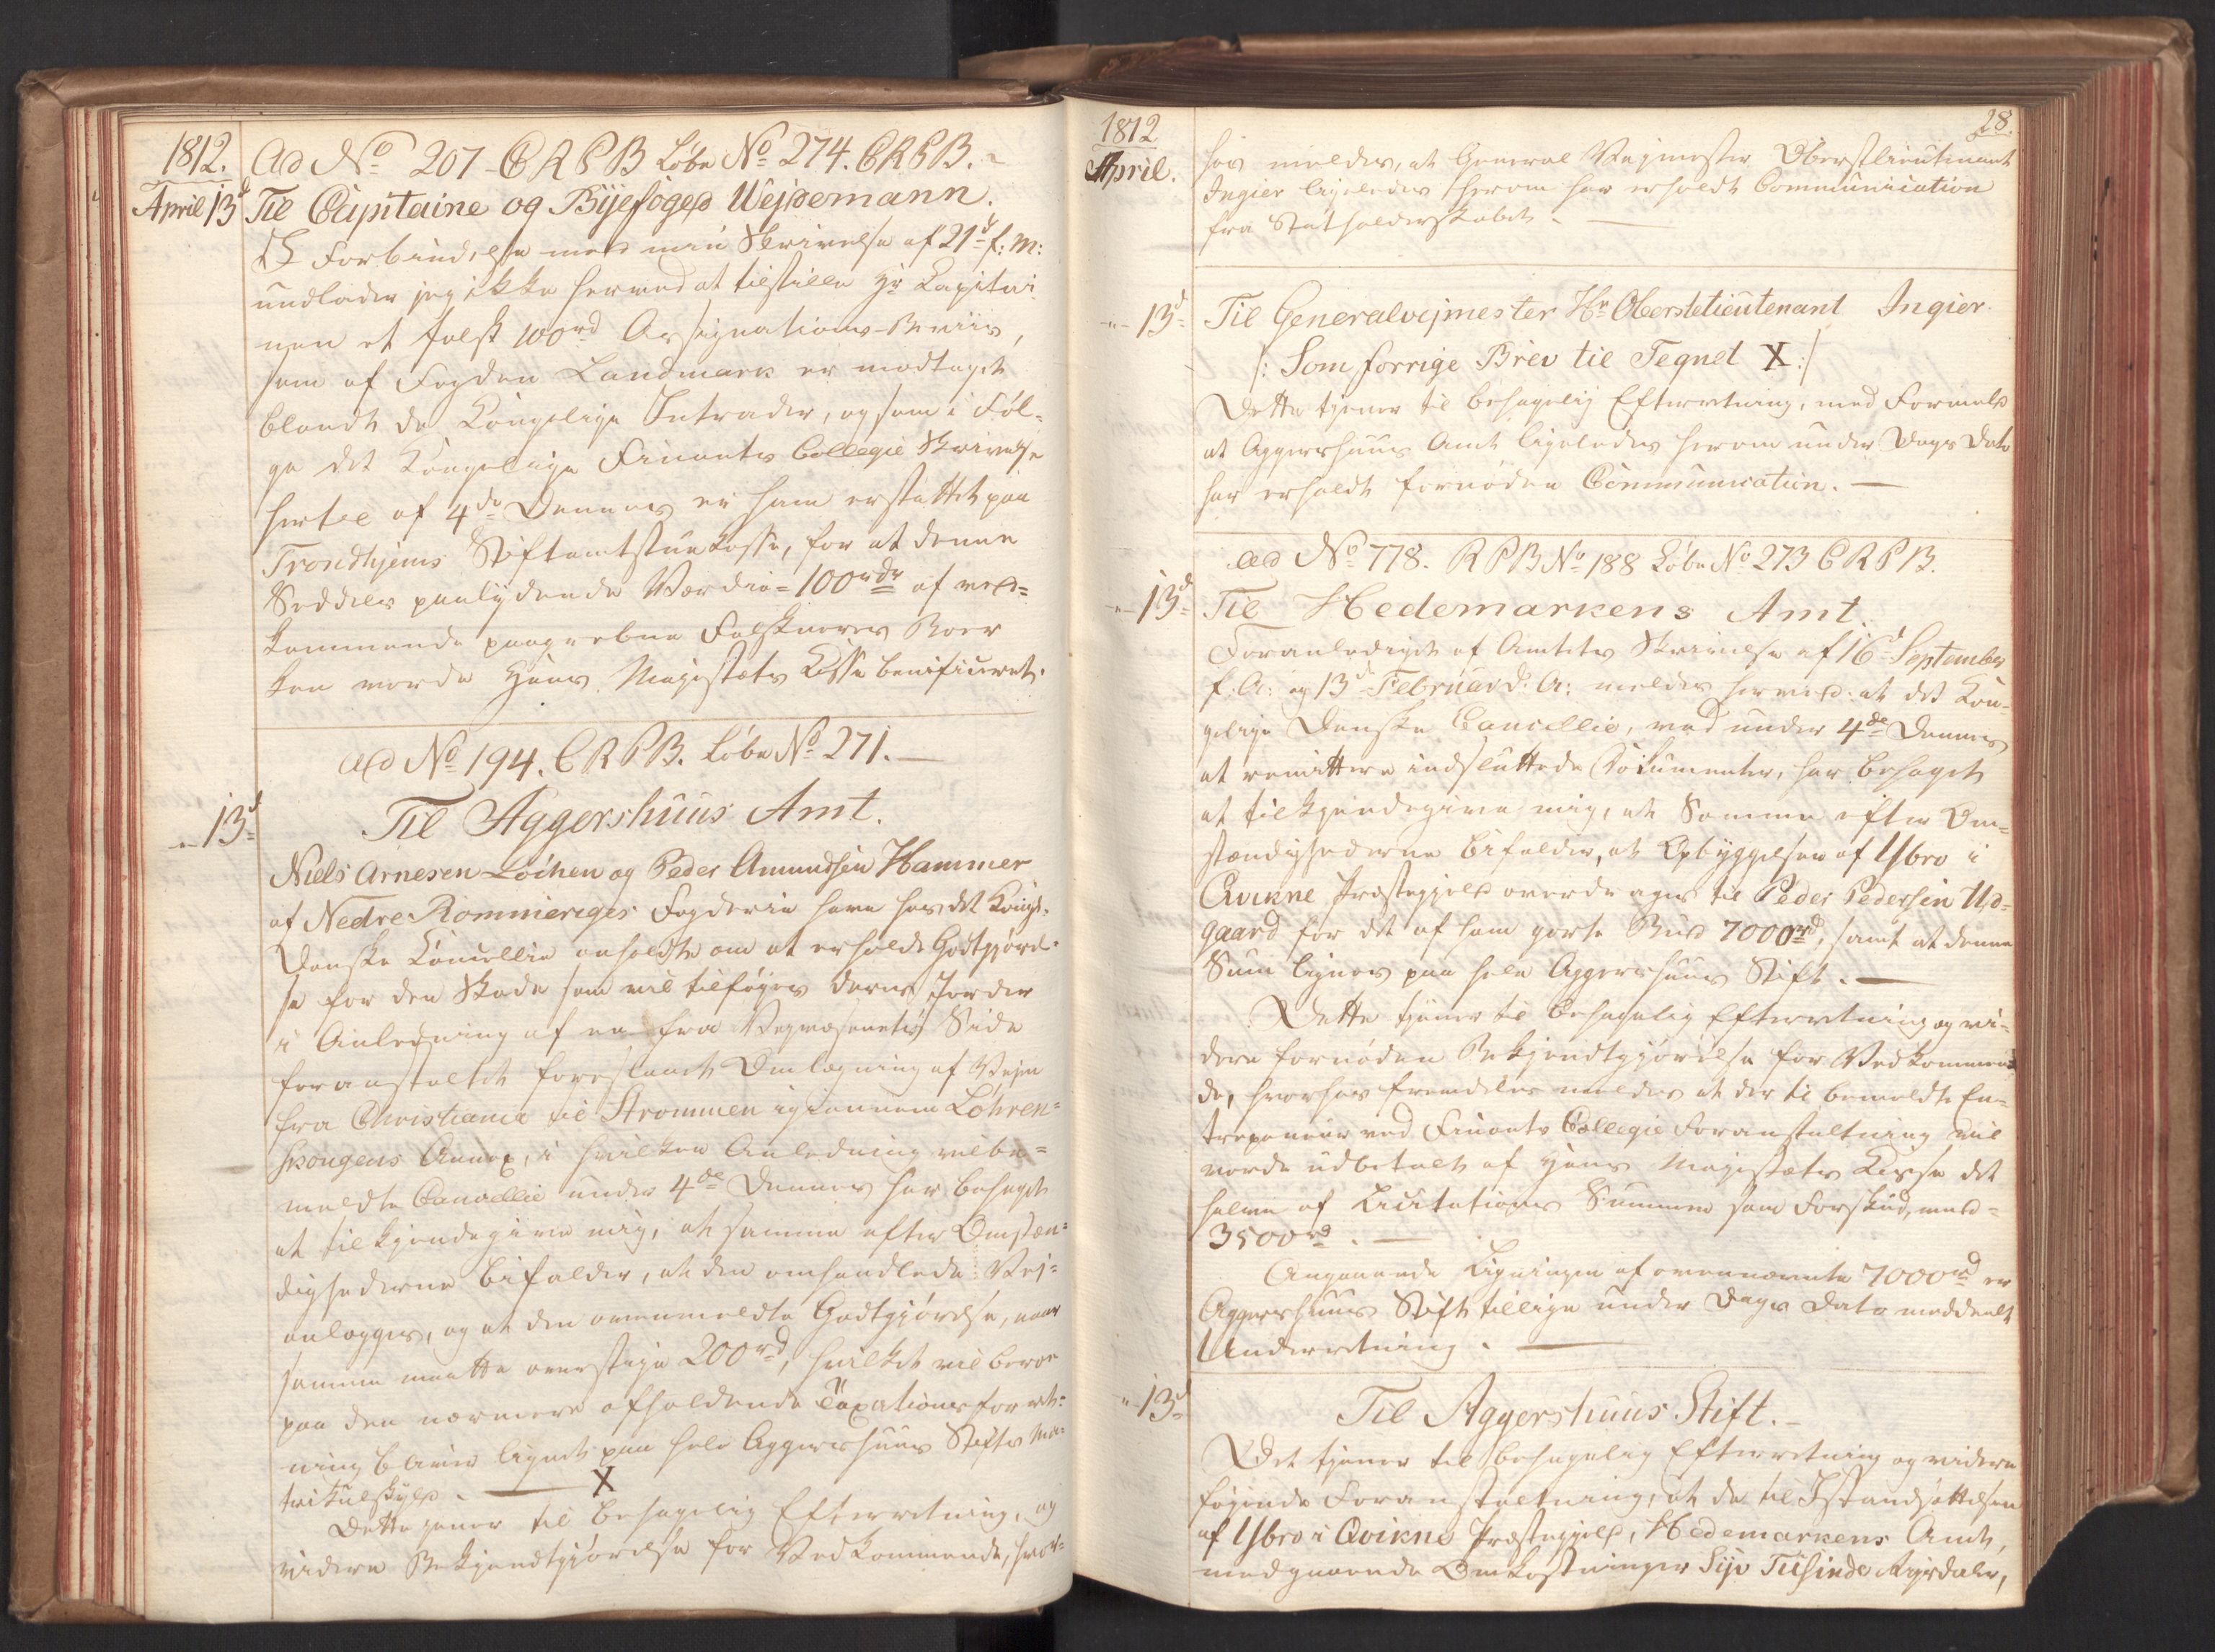 1812.
April 13d
Ad No 207 - C R P B Løbe No 274. C R P B.
Til Capitaine og Bÿefoged Wejdemann.
I Forbindelse med min Skrivelse af 21d f: M:
undlader jeg ikke herved at tilstille Hr Capitai
nen et falsk 100rd Assignations-Beviis,
som af Fogden Landmark er modtaget
blandt de Kongelige Intrader, og som i Føl-
ge det Kongelige Finants Collegie Skrivelse
hertil af 4de Dennes er ham erstattet paa
Trondhjems Stiftamtstue Kasse, for at denne
Seddels paalydende Værdie = 100rdr af ved-
kommende paagrebne Falskneres Boer
kan vorde Hans Majestæts Kasse benificeret.
ad No 194. C R P B. Løbe No 271. —
" 13d
Til Aggershuus Amt.
Niels Arnesen Løchen og Peder Amundsen Hammer
af Nedre Rommeriges Fogderie have hos det Kongl.
Danske Cancellie anholdt om at erholde Godtgjørel-
se for den Skade som vil tilføyes deres Jorder
i Anledning af en fra Vegvæsenets Side
foranstaltet foreslaaet Omlægning af Vejen
fra Christiania til Strømmen igiennem Løhren-
skougens Annex, i hvilken Anledning velbe-
meldte Cancellie under 4de Dennes har behaget
at tilkjendegive mig, at samme efter Omstæn-
dighederne bifalder, at den omhandlede Vej
anlægges, og at den ovenmeldte Godtgjørelse, naar
samme maatte overstige 200rd, hvilket vil beroe
paa den nærmere afholdende Taxationsforret-
ning bliver lignet paa hele Aggershuus Stifts Ma-
trikulskyld. — X
Dette tjener til behagelig Efterretning, og
videre Bekjendtgjørelse for Vedkommende, hvor-
1812
April.
28.
hos meldes, at General Vejmester Oberstlieutenant
Ingier ligeledes herom har erholdt Communication
fra Statholderskabet. —
" 13d
Til Generalvejmester Hr Oberstlieutenant Ingier
/: Som forrige Brev til Tegnet X :/
Dette tjener til behagelig Efterretning, med Formeld
at Aggershuus Amt ligeledes herom under Dags Dato
har erholdt fornøden Communication. —
ad No 778. R P B No 188 Løbe No 273 C R P B.
" 13d
Til Hedemarkens Amt.
Foranlediget af Amtets Skrivelse af 16d September
f: A: og 13d Februar d: A: meldes herved: at det Kon-
gelige Danske Cancellie, ved under 4de Dennes
at remittere indsluttede Documenter, har behaget
at tilkjendegive mig, at Samme efter Om-
stændighederne bifalder, at Opbyggelsen af Ysbro i
Qvikne Præstegjeld overdrages til Peder Pedersen Ud-
gaard for det af ham gjorte Bud 7000rd, samt at denne
Sum lignes paa hele Aggershuus Stift. —
Dette tjener til behagelig Efterretning og vi-
dere fornøden Bekjendtgjørelse for Vedkommen-
de, hvorhos fremdeles meldes at der til bemeldte En-
trepeneur ved Finants Collegie Foranstaltning vil
vorde udbetalt af Hans Majestæts Kasse det
halve af Licitations Summen som Forskud, med
3500rd. —
Angaaende Ligningen af ovennævnte 7000rd er
Aggershuus Stift tillige under Dags Dato meddeelt
Underretning. —
" 13d
Til Aggershuus Stift. -
Det tjener til behagelig Efterretning og videre
føjende Foranstaltning, at de til Istandsættelsen
af Ysbro i Qvikne Præstegjeld, Hedemarkens Amt,
medgaaende Omkostninger Syv Tusinde Rigsdaler,